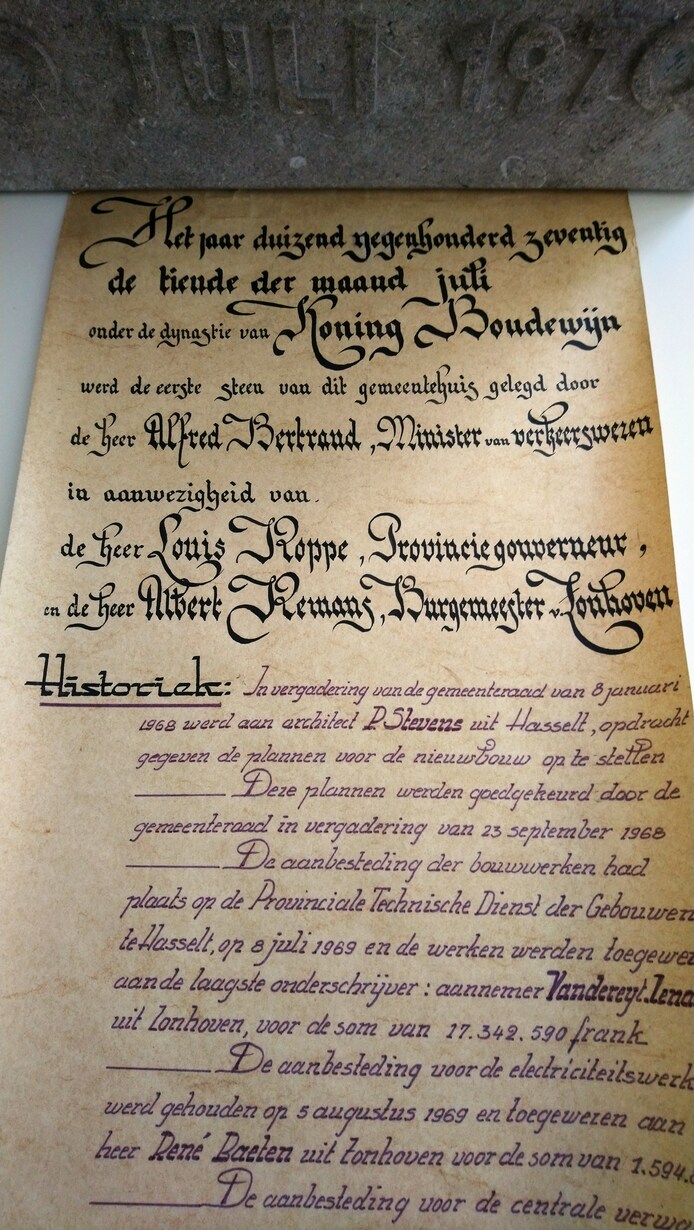 JULI 1970
Het jaar duizend negenhonderd zeventig
de tiende der maand juli
onder de dynastie van Koning Boudewijn
werd de eerste steen van dit gemeentehuis gelegd door
de heer Alfred Bertrand, Minister van verkeerswezen
in aanwezigheid van.
de heer Louis Roppe, Provinciegouverneur,
en de heer Albert Remans, Burgemeester v. Zonhoven
Historiek: In vergadering van de gemeenteraad van 8 januari
1968 werd aan architect P. Stevens uit Hasselt, opdracht
gegeven de plannen voor de nieuwbouw op te stellen
Deze plannen werden goedgekeurd door de
gemeenteraad in vergadering van 23 september 1968
De aanbesteding der bouwwerken had
plaats op de Provinciale Technische Dienst der Gebouwen
te Hasselt, op 8 juli 1969 en de werken werden toegewez
aan de laagste onderschrijver: aannemer Vandereyt. Lena
uit Zonhoven, voor de som van 17.342.590 frank
De aanbesteding voor de electriciteitswerk
werd gehouden op 5 augustus 1969 en toegewezen aan
heer René Baeten uit Zonhoven voor de som van 1.594.
De aanbesteding voor de centrale verw